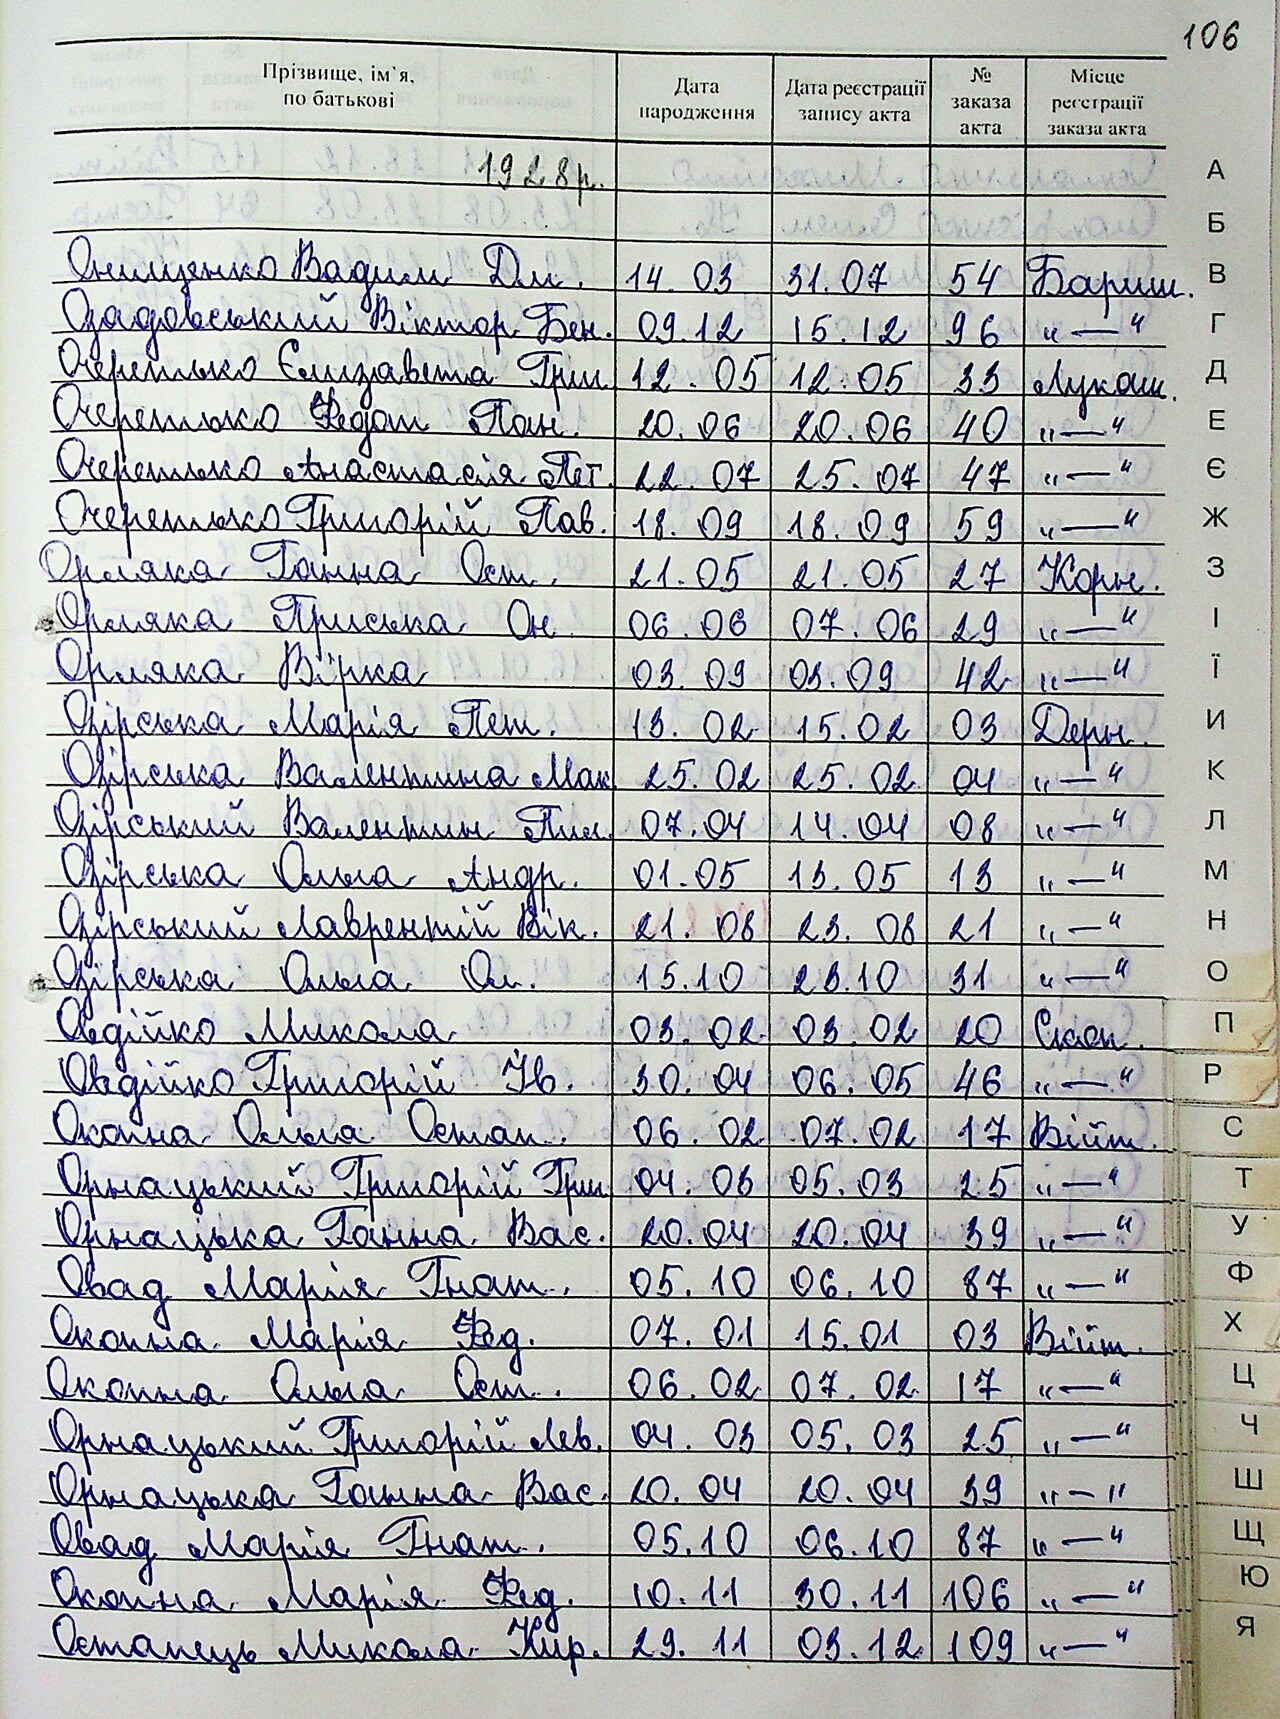 106
Прізвище, ім'я, по батькові Дата народження Дата реєстрації запису акта № заказа акта Місце реєстрації заказа акта
1928р. А
Б
Онищенко Вадим Дм. 14.03 31.07 54 Бариш. В
Озадовський Віктор Бен. 09.12 15.12 96 „—“ Г
Очеретько Єлизавета Григ. 12.05 12.05 33 Лукаш. Д
Очеретько Федот Пан. 20.06 20.06 40 „—“ Е
Очеретько Анастасія Пет. 22.07 25.07 47 „—“ Є
Очеретько Григорій Пав. 18.09 18.09 59 „—“ Ж
Орляка Ганна Ост. 21.05 21.05 27 Корн. З
Орляка Приська Он. 06.06 07.06 29 „—“ І
Орляка Вірка 03.09 03.09 42 „—“ Ї
Озірська Марія Пет. 13.02 15.02 03 Дерн. И
Озірська Валентина Мак. 25.02 25.02 04 „—“ К
Озірський Валентин Пил. 07.04 14.04 08 „—“ Л
Озірська Ольга Андр. 01.05 13.05 13 „—“ М
Озірський Лаврентій Вік. 21.08 23.08 21 „—“ Н
Озірська Ольга Ол. 15.10 23.10 31 „—“ О
Овдійко Микола 03.02 03.02 20 Скоп. П
Овдійко Григорій Ів. 30.04 06.05 46 „—“ Р
Окопна Ольга Остап. 06.02 07.02 17 Війт. С
Орнацький Григорій Григ. 04.03 05.03 25 „—“ Т
Орнацька Ганна Вас. 20.04 20.04 39 „—“ У
Овад Марія Гнат. 05.10 06.10 87 „—“ Ф
Окопна Марія Фед. 07.01 15.01 03 Війт. Х
Окопна Ольга Ост. 06.02 07.02 17 „—“ Ц
Орнацький Григорій Лев. 04.03 05.03 25 „—“ Ч
Орнацька Ганна Вас. 20.04 20.04 39 „—“ Ш
Овад Марія Гнат. 05.10 06.10 87 „—“ Щ
Окопна Марія Фед. 10.11 30.11 106 „—“ Ю
Остапець Микола Кир. 29.11 03.12 109 „—“ Я